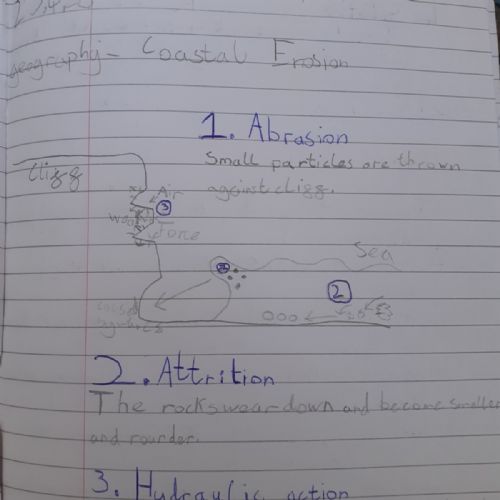 geography - Coastal Erosion
1. Abrasion
Small particles are thrown
against cliff.
cliff
Air
3
Force
Sea
2
2. Attrition
The rocks wear down and become smaller
and rounder.
3. Hydraulic action